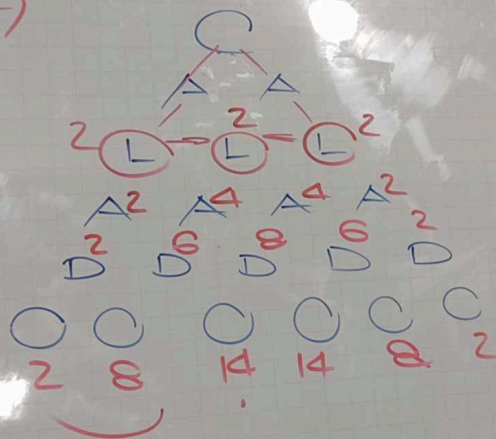 C
A A
2 L 2 L L 2
A 2 A 4 A 4 A 2
2 6 8 6 2
D D D D D
O C C C C C
2 8 14 14 8 2